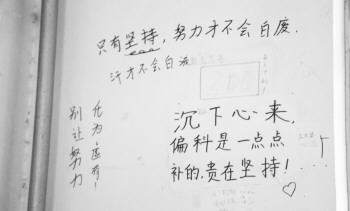 只有坚持,努力才不会白废.
汗才不会白流
别让努力
化为虚有!
沉下心来,
偏科是一点点
补的,贵在坚持!